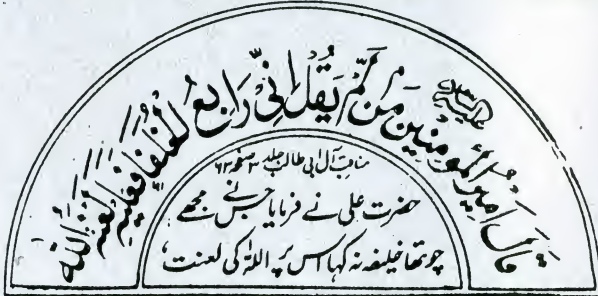 قال امیر المومنین علیہ السلام من لم یقل انی رابع الخلفا فعلیہ لعنۃ اللہ
مناقب آل ابی طالب جلد ۳ صفحہ ۶۳
حضرت علی نے فرمایا جس نے مجھے
چوتھا خلیفہ نہ کہا اس پر اللہ کی لعنت